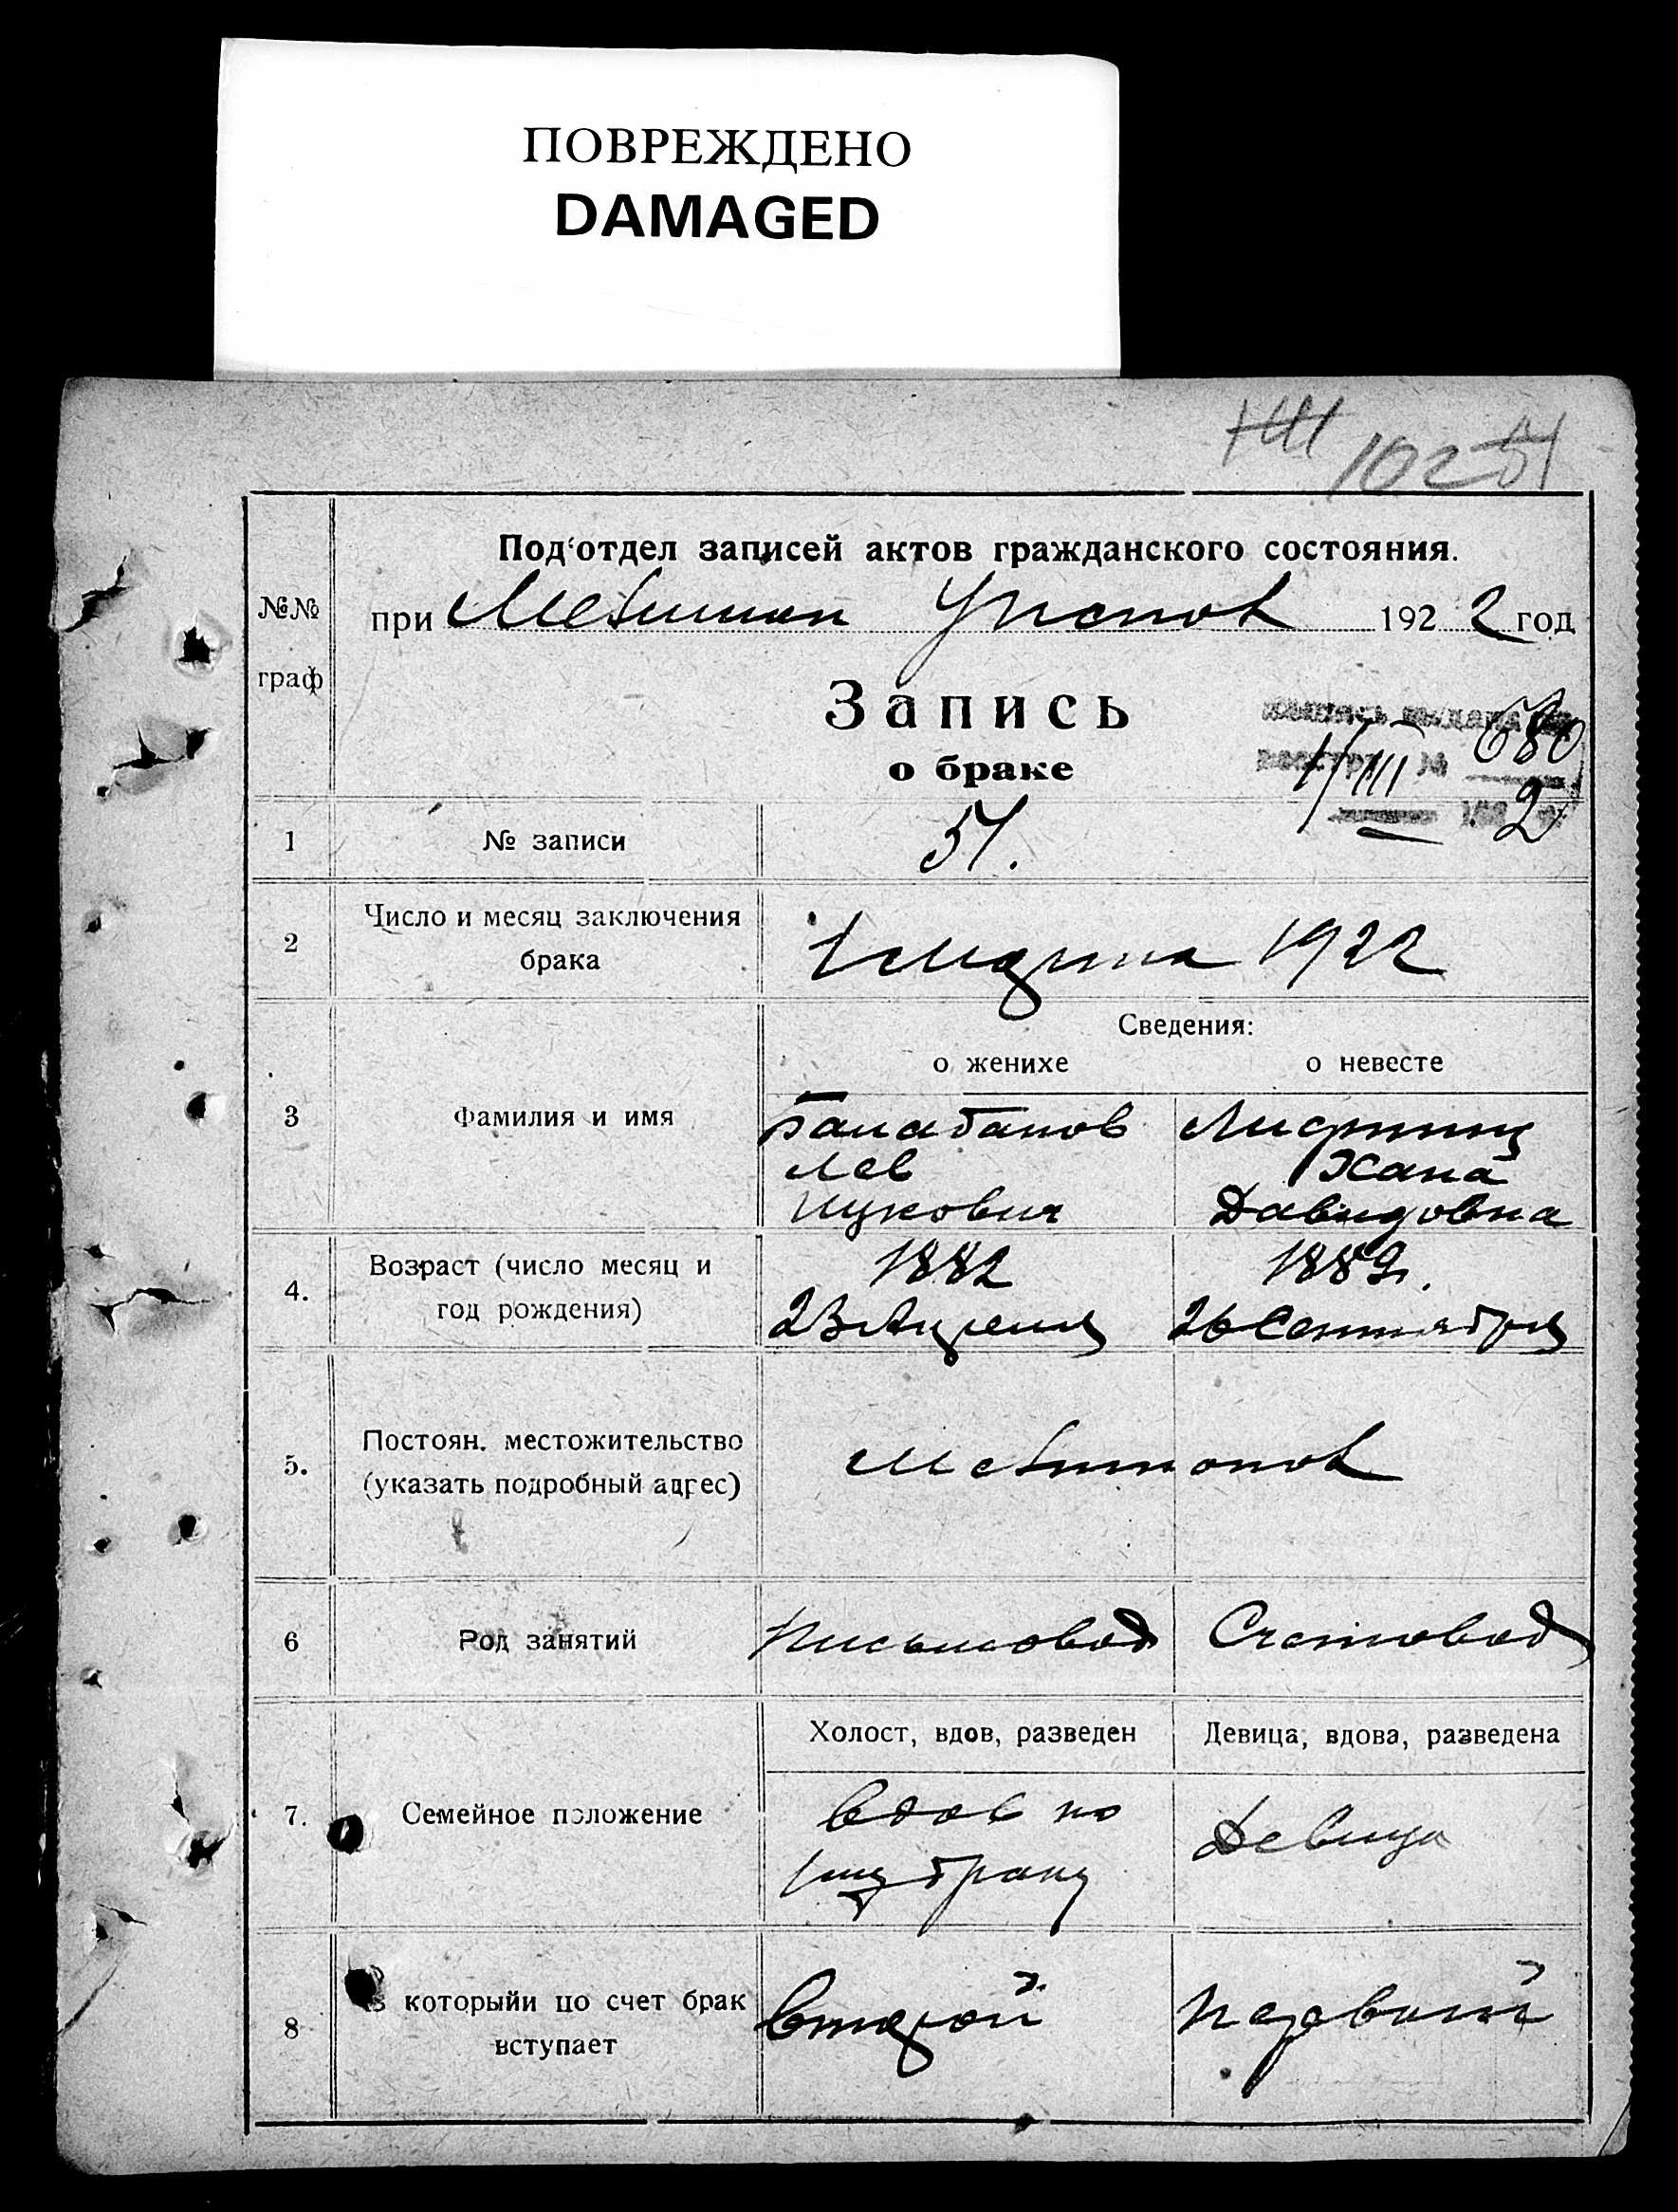 ПОВРЕЖДЕНО
DAMAGED
102 51
Под'отдел записей актов гражданского состояния.
№№
граф
при Мелитоп Уисполк 1922 год
Запись
о браке
680
1/III
2
1 № записи 51.
2 Число и месяц заключения
брака
1 марта 1922
Сведения:
о женихе о невесте
3 Фамилия и имя
Балабанов
Лев
Ицкович
Хана
Давидовна
4. Возраст (число месяц и
год рождения)
1882
23 Апреля
1889.
26 Сентября
5. Постоян. местожительство
(указать подробный адрес)
Мелитополь
6 Род занятий Письмовод Счетовод
7. Семейное положение
Холост, вдов, разведен Девица, вдова, разведена
вдов по
1му браку
Девица
8 В которыйи по счет брак
вступает
второй первый